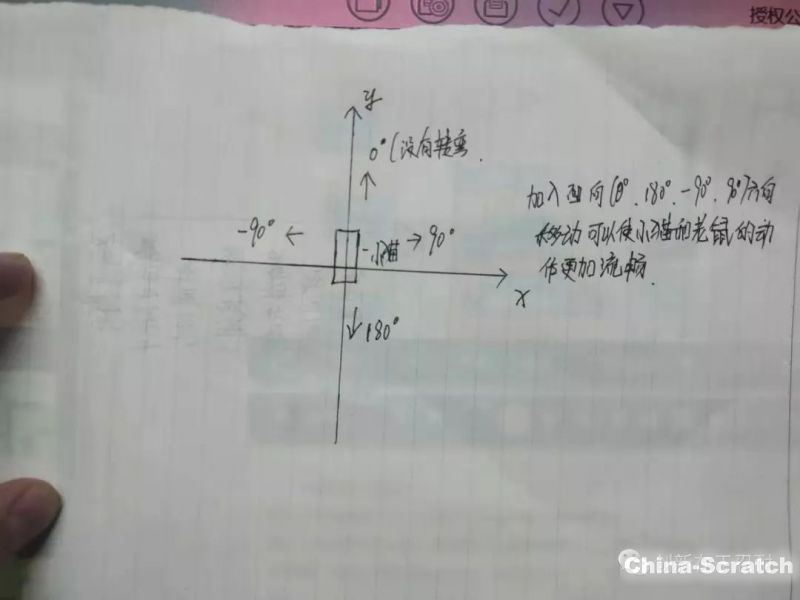 授权公
y
0°(没有转弯.
加入面向(0°.180°.-90°.90°)方向
移动可以使小猫和老鼠的动
作更加流畅.
-90° ← -小猫 → 90°
x
↓180°
China-Scratch